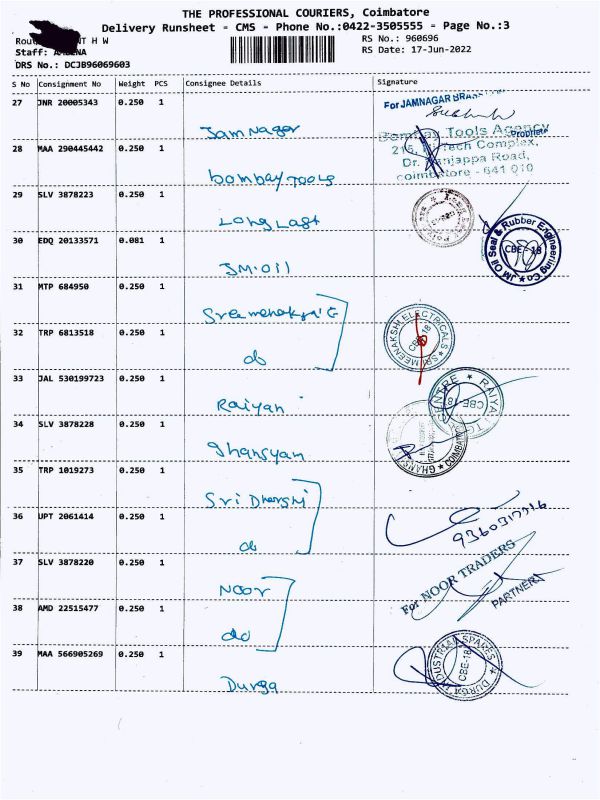 THE PROFESSIONAL COURIERS, Coimbatore
Delivery Runsheet - CMS - Phone No.:0422-3505555 - Page No.:3
H W
RS No.: 960696
Staff:
RS Date: 17-Jun-2022
DRS No.: DCJB96069603
S No Consignment No Weight PCS Consignee Details Signature
27 JNR 20005343 0.250 1 Jamnager
For JAMNAGAR
28 MAA 290445442 0.250 1 bombay Tools
Bombay Tools Agency
Proprietor
215, Hitech Complex,
Dr. Nanjappa Road,
coimbatore - 641 010
29 SLV 3878223 0.250 1 Long Last
30 EDQ 20133571 0.081 1 JM.Oil
JM Oil Seal & Rubber Engineering Co
CBE-18
31 MTP 684950 0.250 1
32 TRP 6813518 0.250 1 do
SRI MEENAKSHI ELECTRICALS
CBE-18
33 JAL 530199723 0.250 1 Raiyan
CENTRE RAIYAN
CBE-18
34 SLV 3878228 0.250 1 Ghansyam
COIMBATORE
35 TRP 1019273 0.250 1 Sri Dharshi
36 UPT 2061414 0.250 1 do
37 SLV 3878220 0.250 1 Noor
For NOOR TRADERS
PARTNER
38 AMD 22515477 0.250 1 do
39 MAA 566905269 0.250 1 Durga
DURGA INDUSTRIAL SPARES
CBE-18